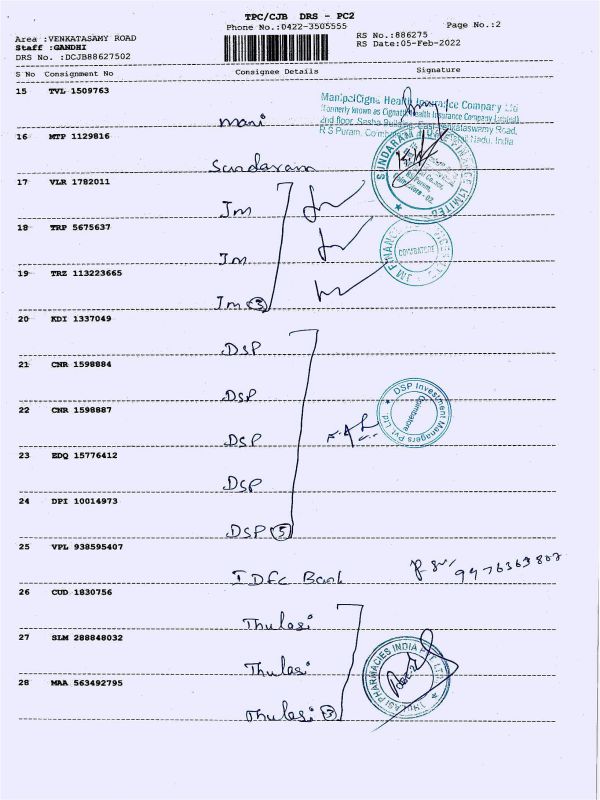 TPC/CJB DRS - PC2
Phone No.:0422-3505555
Page No.:2
Area :VENKATASAMY ROAD
Staff :GANDHI
DRS No. :DCJB88627502
RS No.:886275
RS Date:05-Feb-2022
S No Consignment No Consignee Details Signature
15 TVL 1509763
mani
ManipalCigna Health Insurance Company Ltd
(formerly known as CignaTTK Health Insurance Company Limited)
2nd floor, Sesha Building, East Venkataswamy Road,
R S Puram, Coimbatore, Tamil Nadu, India
16 MTP 1129816
Sundaram
SUNDARAM FINANCE LIMITED
17 VLR 1782011
Jm
18 TRP 5675637
Jm
JM FINANCIAL SERVICES
COIMBATORE
19 TRZ 113223665
Jm (3)
20 KDI 1337049
DSP
21 CNR 1598884
DSP
DSP Investment Managers Pvt Ltd.
Coimbatore
22 CNR 1598887
DSP
23 EDQ 15776412
DSP
24 DPI 10014973
DSP (5)
25 VPL 938595407
IDFC Bank
26 CUD 1830756
Thulasi
27 SLM 288848032
Thulasi
THULASI PHARMACIES INDIA PVT LTD
28 MAA 563492795
Thulasi (3)